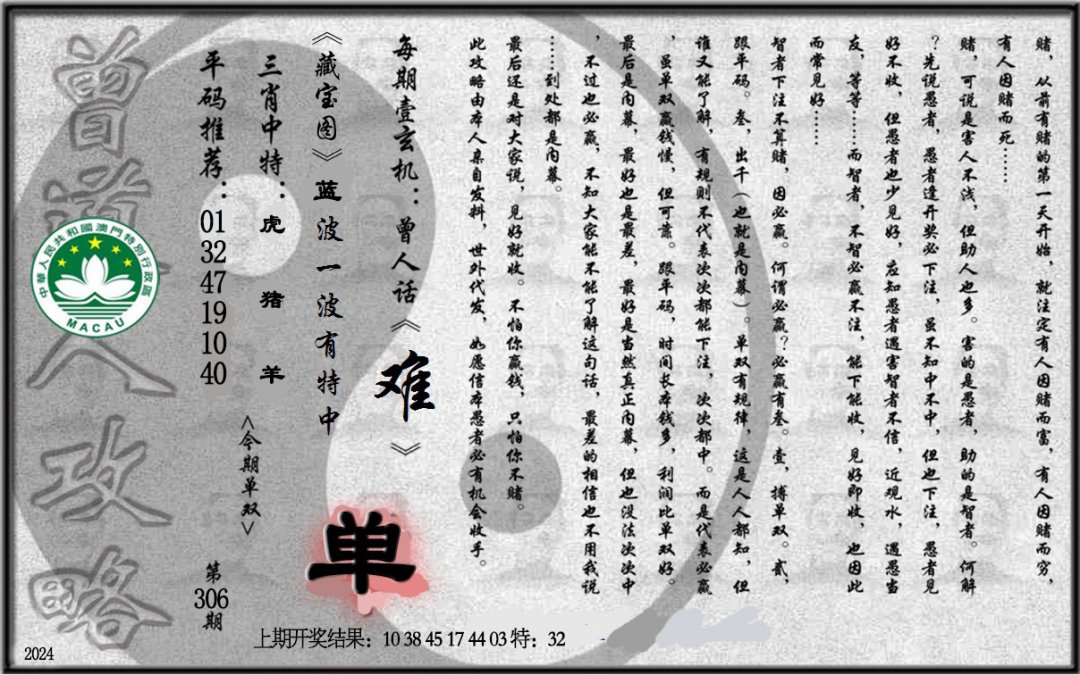 赌，从前有赌的第一天开始，就注定有人因赌而富，有人因赌而穷，
有人因赌而死……
赌，可说是害人不浅，但助人也多。害的是愚者，助的是智者。何解
？先说愚者，愚者逢开奖必下注，虽不知中不中，但也下注，愚者见
好不收，但愚者也少见好，应知愚者遇害智者不信，近观水，遇愚当
友，等等……而智者，不智必赢不注，能下能收，见好即收，也因此
而常见好……
智者下注不算赌，因必赢。何谓必赢？必赢有叁。壹，搏单双。贰，
跟平码。叁，出千（也就是内幕）。单双有规律，这是人人都知，但
谁又能了解，有规则不代表次次都能下注，次次都中。而是代表必赢
，虽单双赢钱慢，但可靠。跟平码，时间长本钱多，利润比单双好。
最后是内幕，最好也是最差，最好是当然真正内幕，但也没法次次中
，不过也必赢，不知大家能不能了解这句话，最差的相信也不用我说
……到处都是内幕。
最后还是对大家说，见好就收。不怕你赢钱，只怕你不赌。
此攻略由本人亲自发料，世外代发，如愿信本愚者必有机会收手。
每期壹玄机：曾人话《难》
《藏宝图》蓝波一波有特中
三肖中特：虎 猪 羊
<今期单双>
单
平码推荐：01 32 47 19 10 40
第306期
曾道人攻略
中華人民共和國澳門特別行政區
MACAU
上期开奖结果：10 38 45 17 44 03 特：32
2024